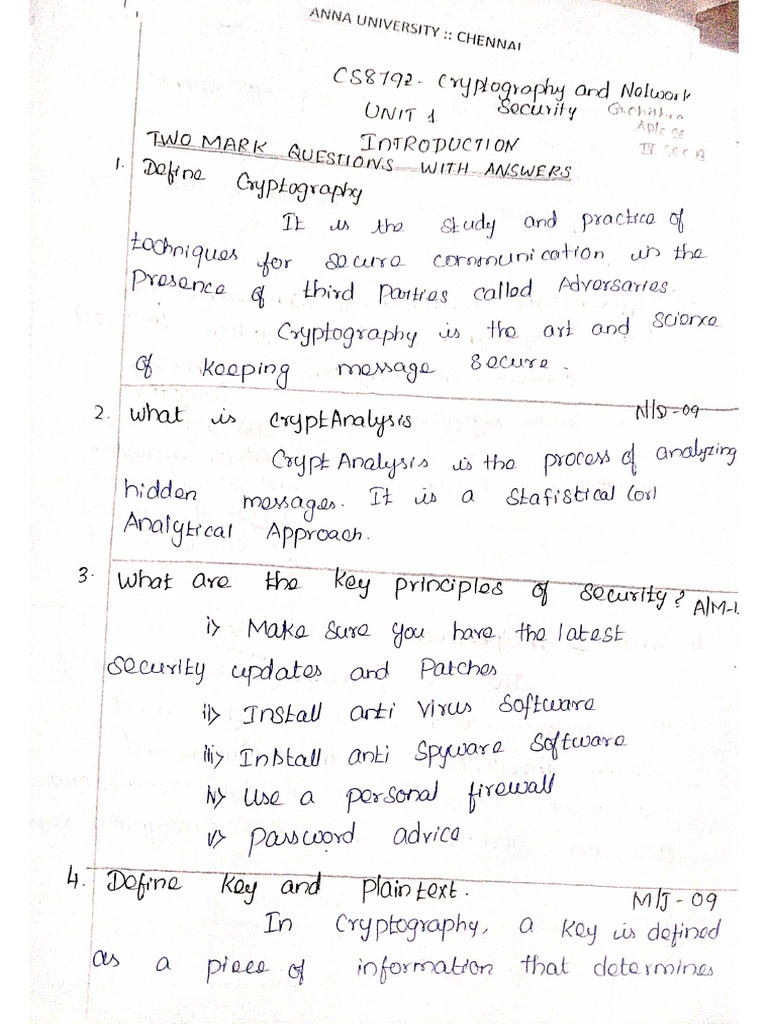 ANNA UNIVERSITY :: CHENNAI
CS8792 - Cryptography and Network
Security
UNIT 1
INTRODUCTION
TWO MARK QUESTIONS WITH ANSWERS
1. Define Cryptography
It is the study and practice of
techniques for secure communication in the
Presence of third Parties called Adversaries.
Cryptography is the art and Science
of keeping message secure.
2. What is CryptAnalysis N/D-09
CryptAnalysis is the process of analyzing
hidden messages. It is a Stafistical (or)
Analytical Approach.
3. What are the key principles of security? A/M-1
i> Make sure you have the latest
security updates and Patches
ii> Install anti virus software
iii> Install anti spyware software
iv> Use a personal firewall
v> Password advice.
4. Define key and plaintext. M/J-09
In Cryptography, a key is defined
as a piece of information that determines